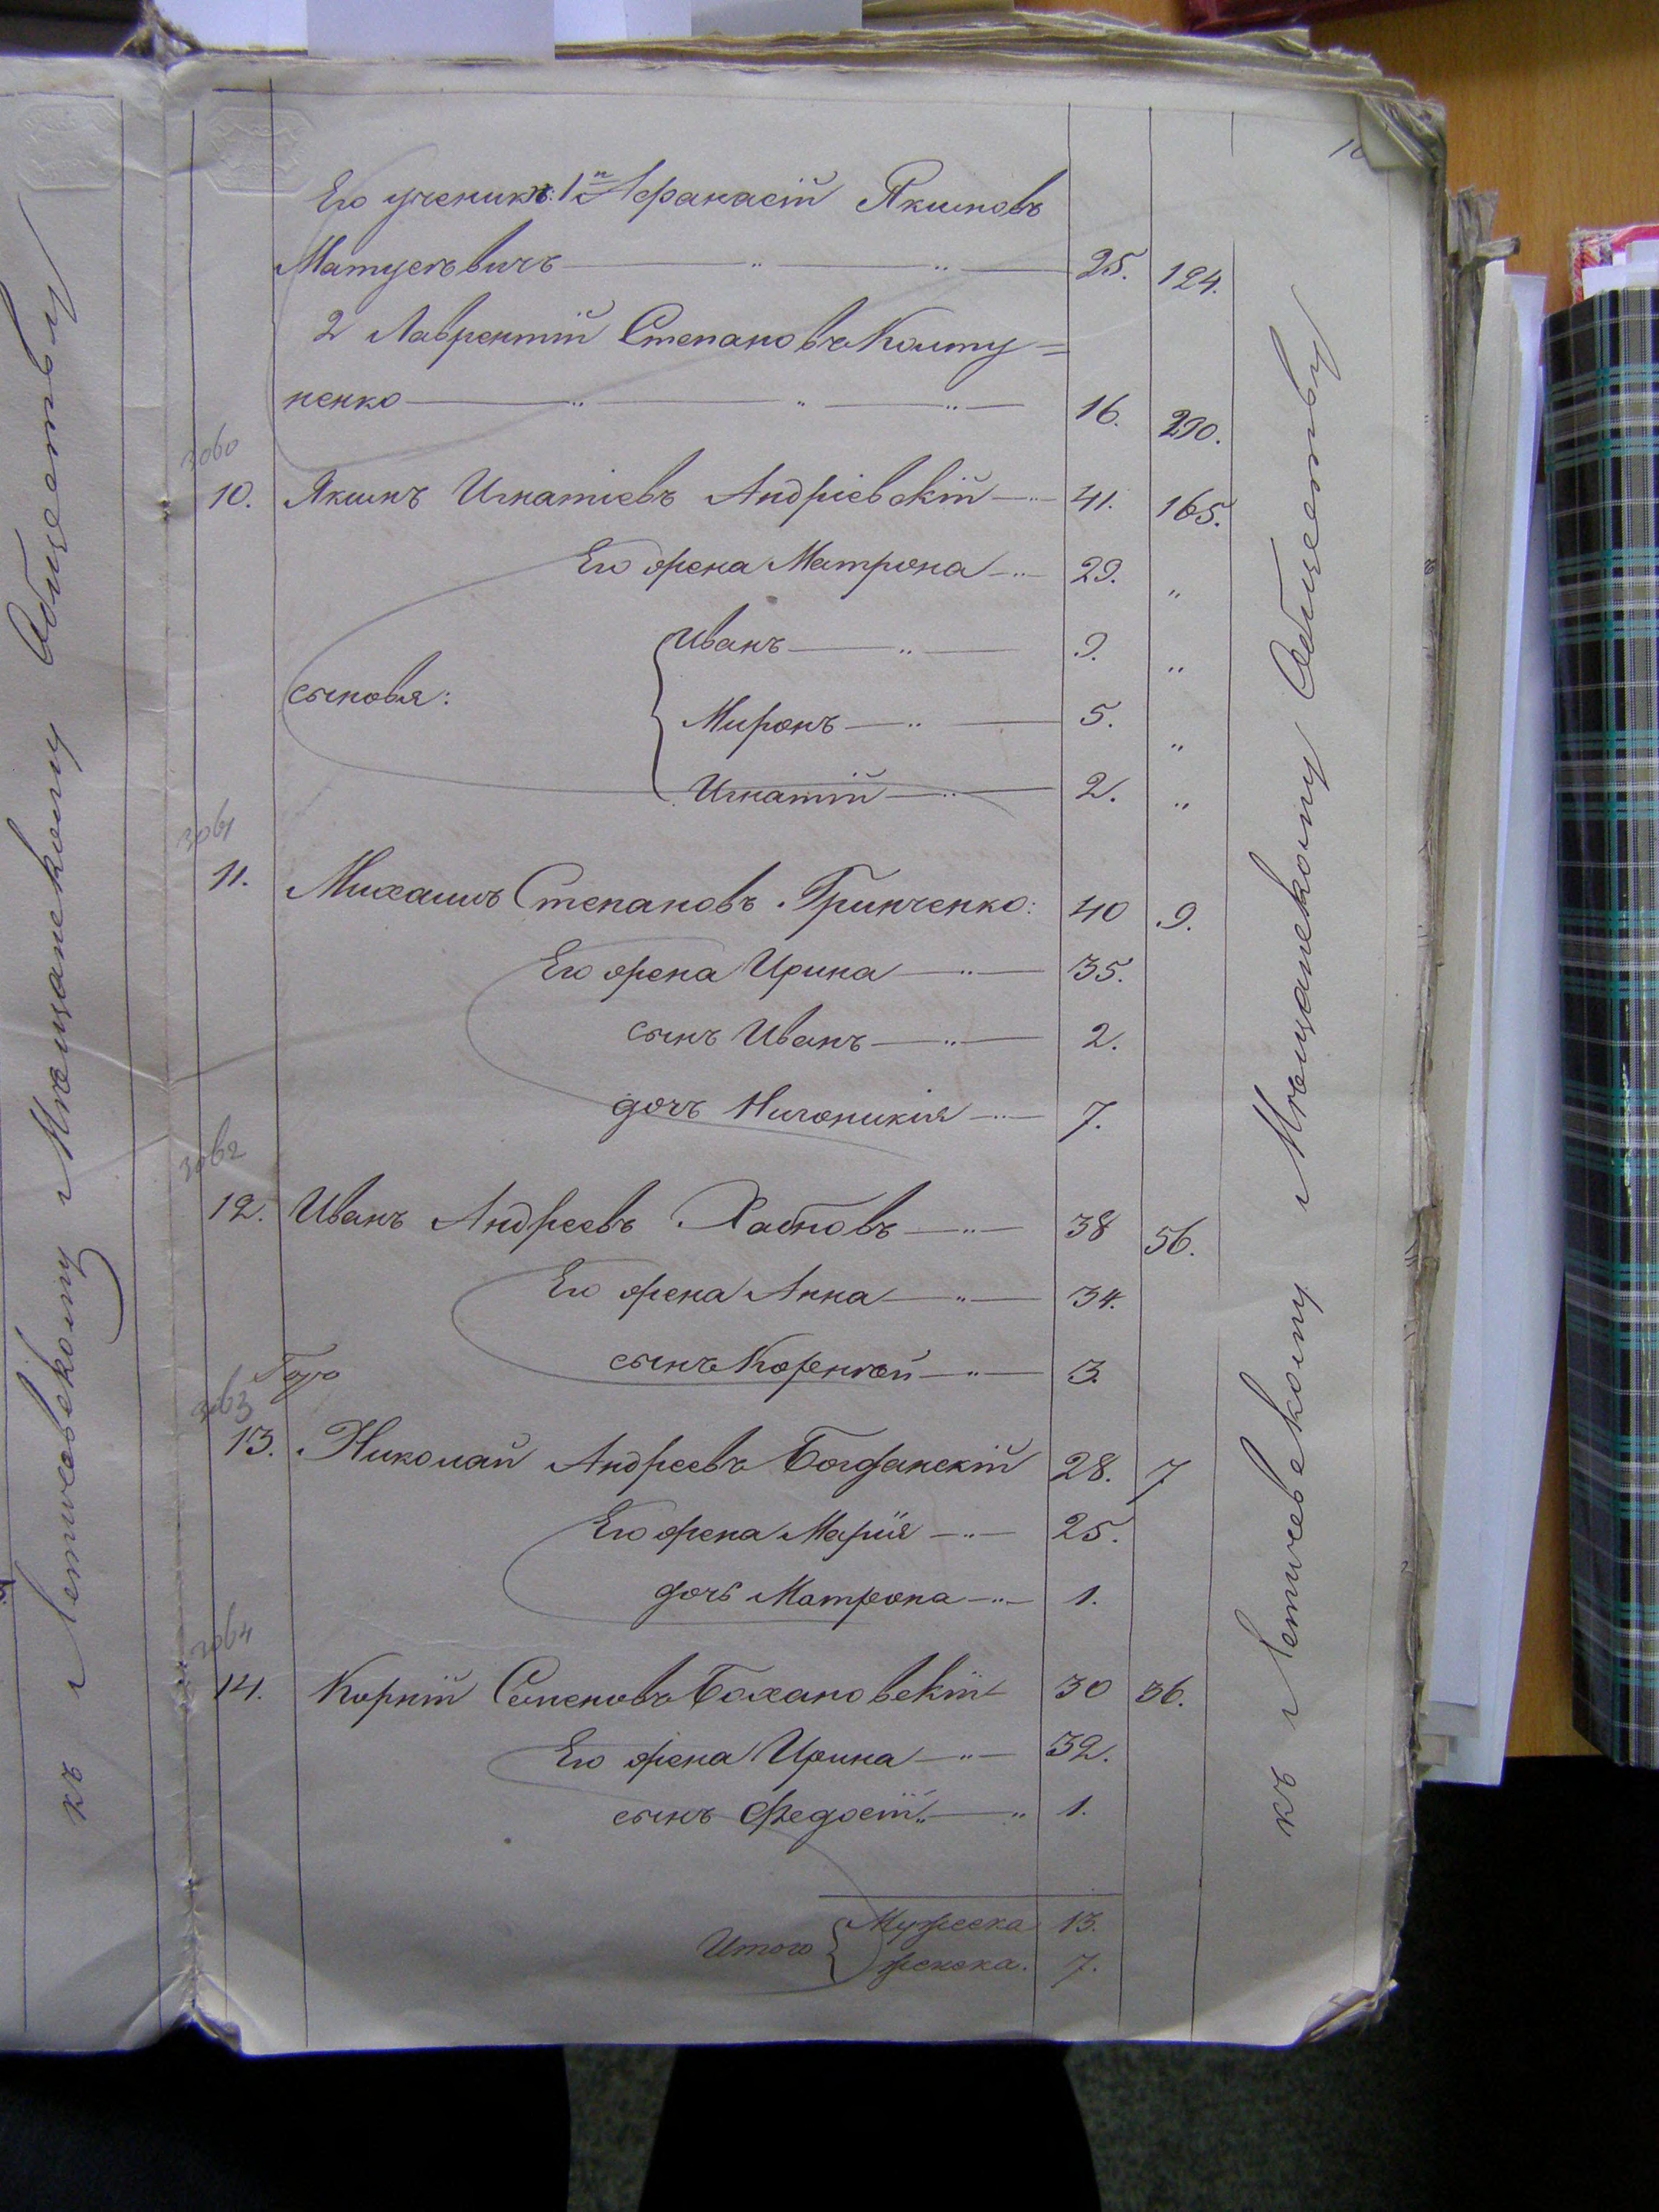 Его ученики: 1й Афанасій Якимовъ
Матусевичъ 25. 124.
2 Лаврентій Степановъ Колту=
ненко 16. 290.
3060
10. Якимъ Игнатіевъ Андріевскій 41. 165.
Его жена Матрона 29. "
Иванъ 9. "
сыновья:
Миронъ 5. "
Игнатій 2. "
3061
11. Михаилъ Степановъ Гринченко: 40 9.
Его жена Ирина 35.
сынъ Иванъ 2.
дочь 7.
3062
12. Иванъ Андреевъ 38 56.
Его жена Анна 34.
сынъ 3.
3063
13. Николай Андреевъ Богданскій 28. 7
Его жена Марія 25.
дочь Матрона 1.
3064
14. Корній Семеновъ Бохановскій 30 36.
Его жена Ирина 32.
сынъ Федосій 1.
Итого
Мужеска 13.
женска. 7.
къ Летичевскому Мѣщанскому Обществу
къ Летичевскому Мѣщанскому Обществу